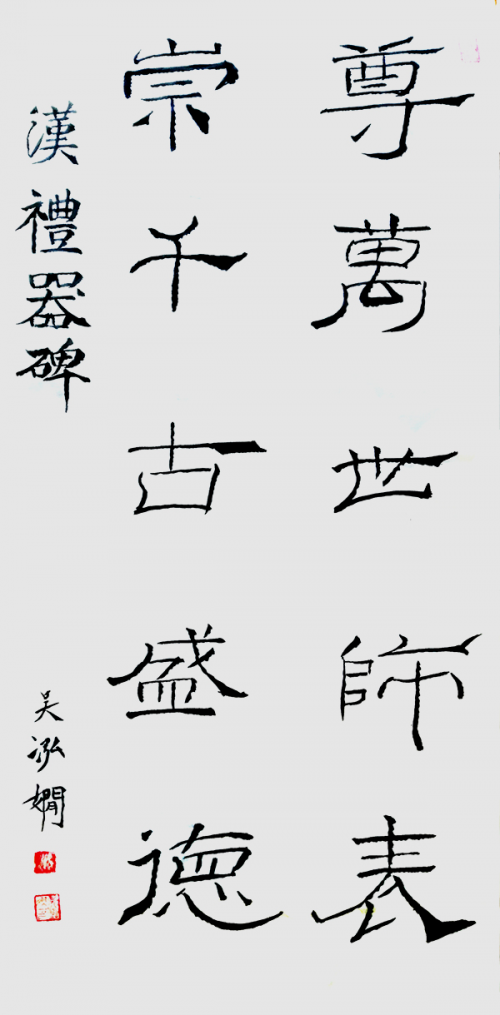 尊萬世師表
崇千古盛德
漢禮器碑
吴泓嫺